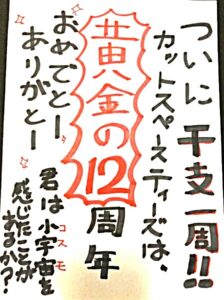 ついに干支一周!!
カットスペースティーズは、
黄金の12周年
おめでとー
ありがとー
君は小宇宙を
コスモ
感じたことが
あるか?